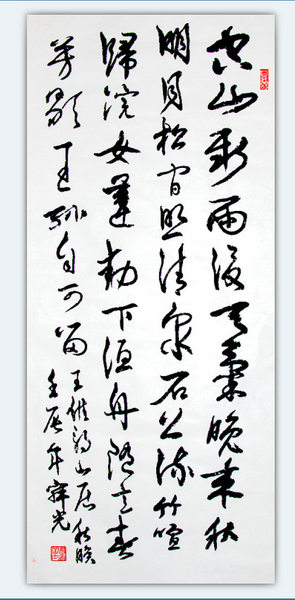 空山新雨後天氣晚来秋
明月松间照清泉石上流竹喧
歸浣女蓮動下渔舟随意春
芳歇王孫自可留
王维诗山居秋暝
壬辰年